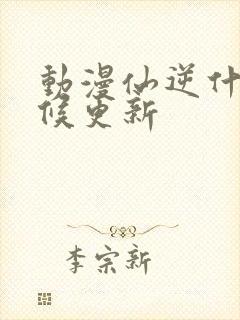 動漫仙逆什
候更新
李宗新